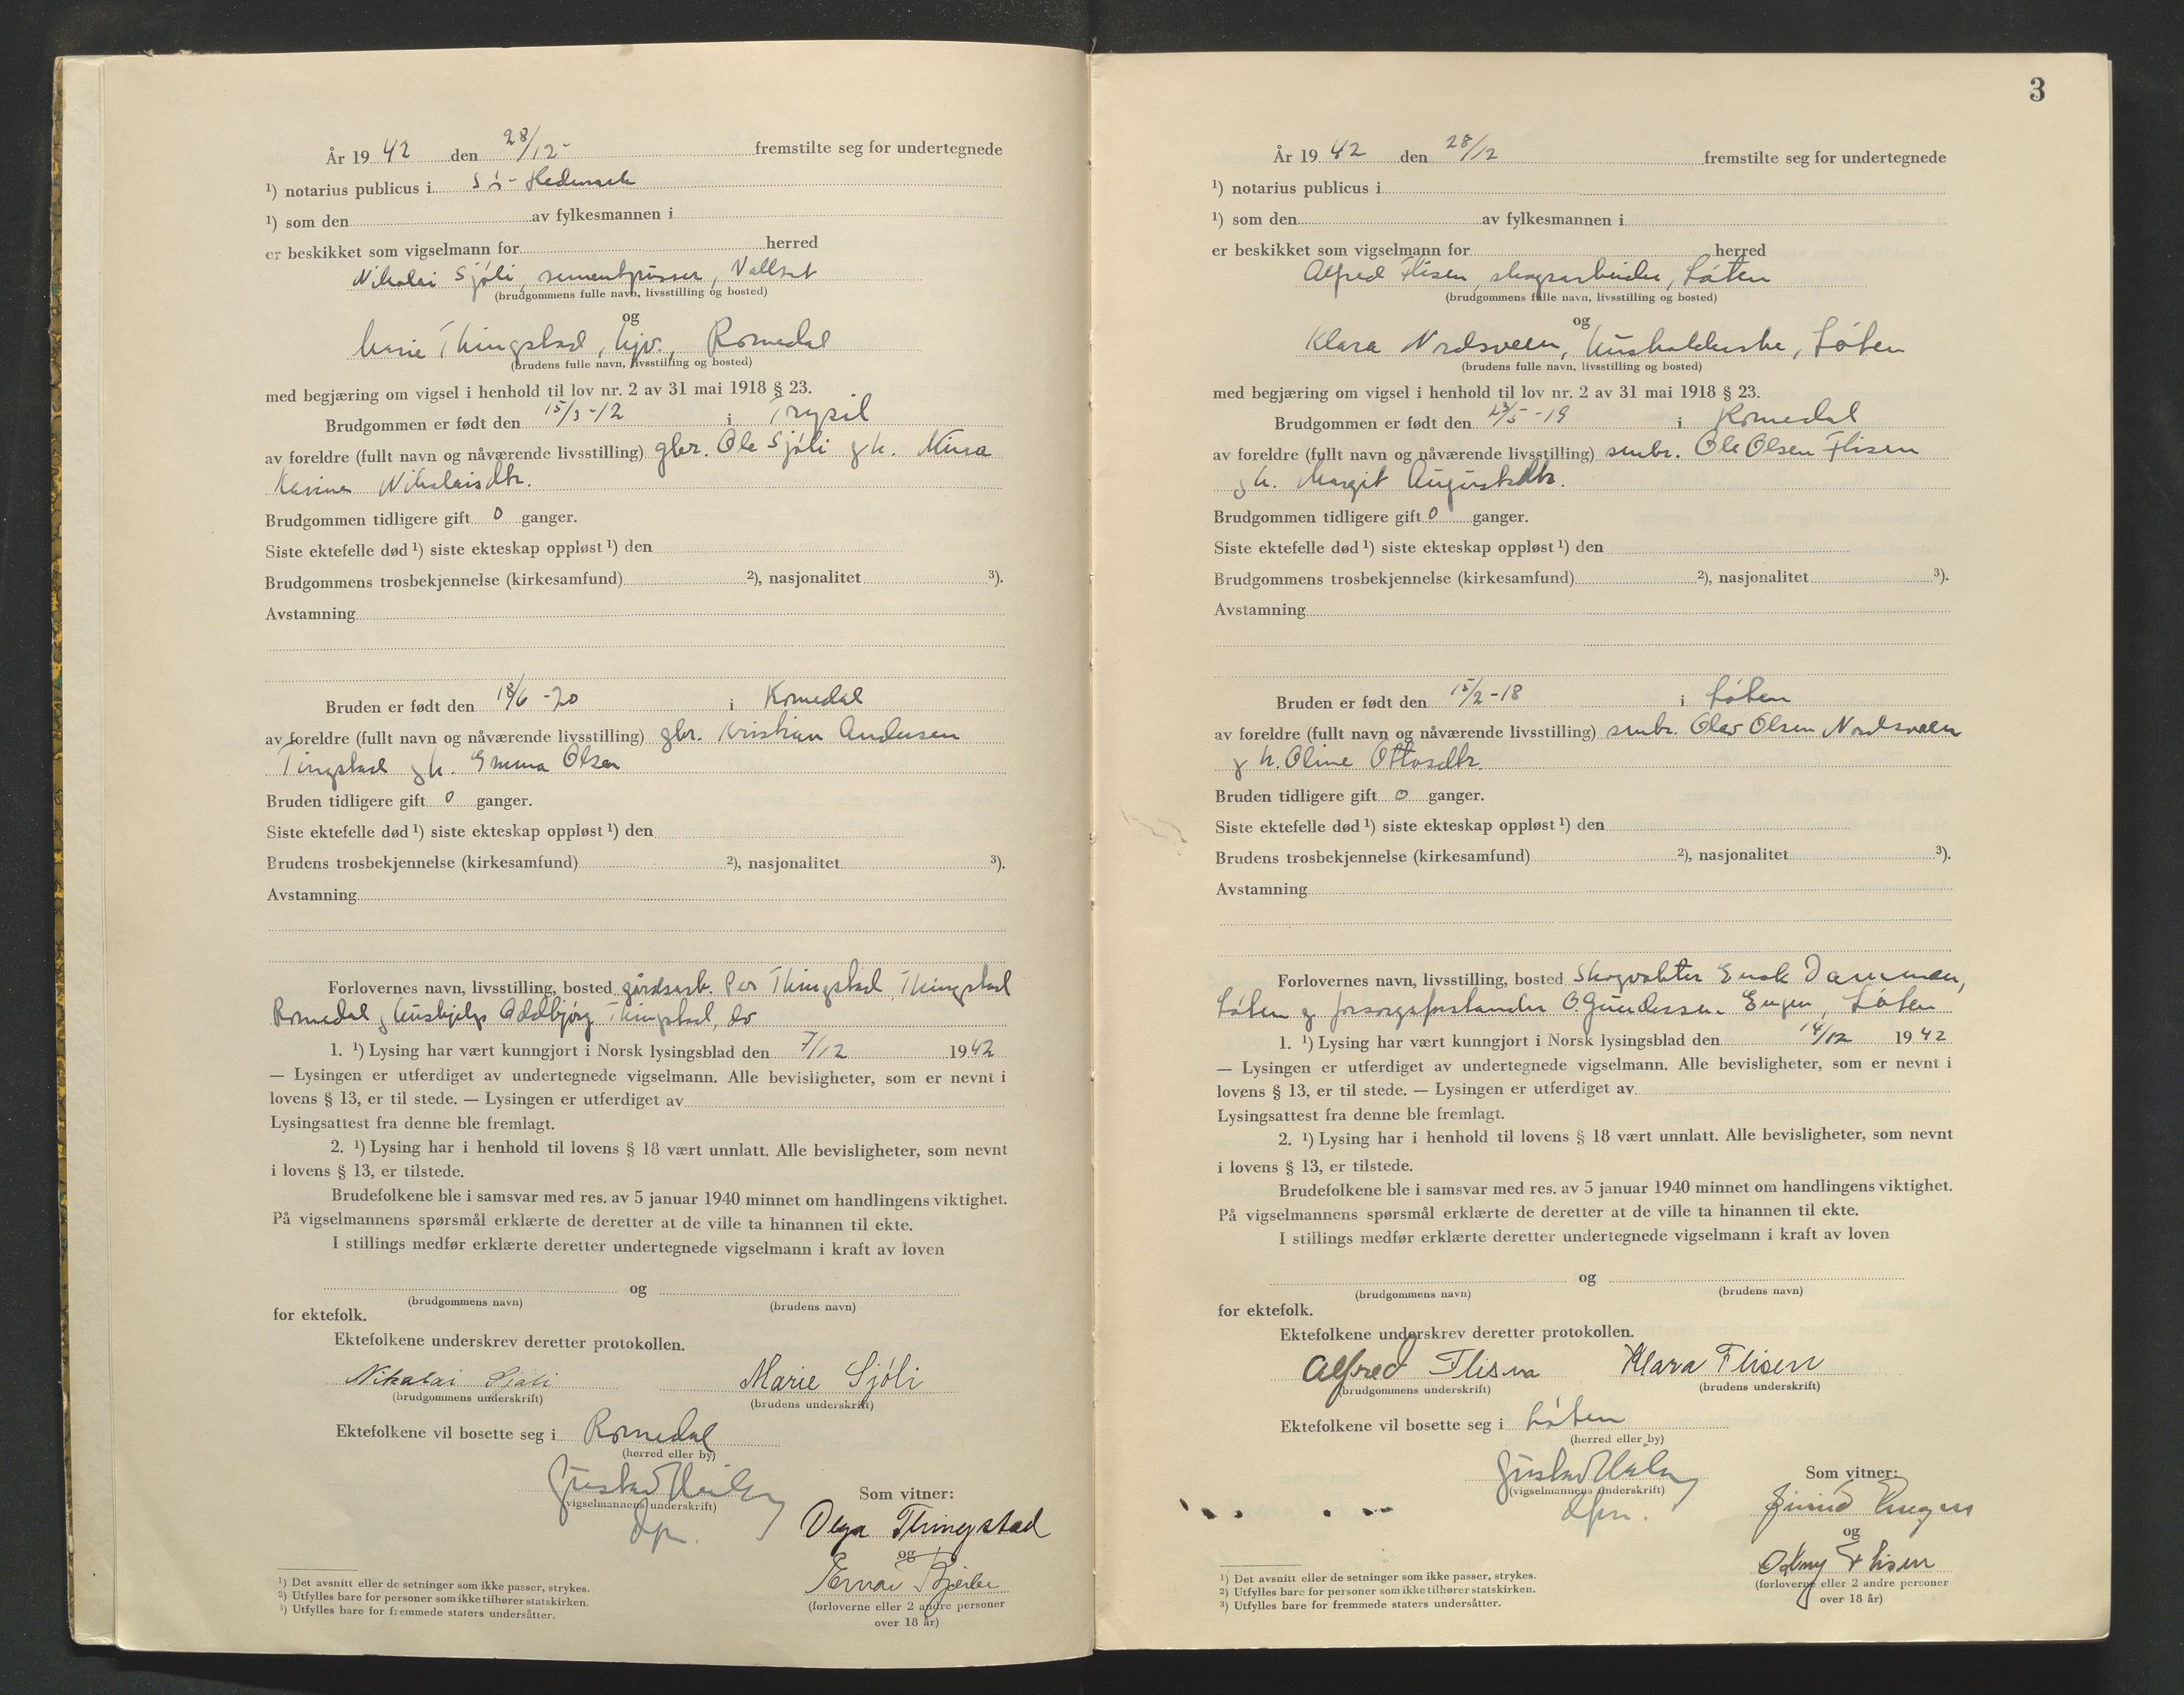 År 19 42 den 28/12- fremstilte seg for undertegnede
¹) notarius publicus i Sö-Hedmark
¹) som den av fylkesmannen i
er beskikket som vigselmann for herred
Nikolai Sjöli, sementpusser, Vallset
(brudgommens fulle navn, livsstilling og bosted)
og
Marie Thingstad, hjv., Romedal
(brudens fulle navn, livsstilling og bosted)
med begjæring om vigsel i henhold til lov nr. 2 av 31 mai 1918 § 23.
Brudgommen er født den 15/3-12 i Trysil
av foreldre (fullt navn og nåværende livsstilling) gbr. Ole Sjöli g h. Mina
Karine Nikolaisdtr.
Brudgommen tidligere gift 0 ganger.
Siste ektefelle død ¹) siste ekteskap oppløst ¹) den
Brudgommens trosbekjennelse (kirkesamfund) ²), nasjonalitet ³).
Avstamning
Bruden er født den 18/6-20 i Romedal
av foreldre (fullt navn og nåværende livsstilling) gbr. Kristian Andersen
Tingstad g h. Emma Olsen
Bruden tidligere gift 0 ganger.
Siste ektefelle død ¹) siste ekteskap oppløst ¹) den
Brudens trosbekjennelse (kirkesamfund) ²), nasjonalitet ³).
Avstamning
Forlovernes navn, livsstilling, bosted gårdsarb. Per Thingstad, Thingstad
Romedal g hushjelp Oddbjörg Thingstad, do
1. ¹) Lysing har vært kunngjort i Norsk lysingsblad den 7/12 1942
— Lysingen er utferdiget av undertegnede vigselmann. Alle bevisligheter, som er nevnt i
lovens § 13, er til stede. — Lysingen er utferdiget av
Lysingsattest fra denne ble fremlagt.
2. ¹) Lysing har i henhold til lovens § 18 vært unnlatt. Alle bevisligheter, som nevnt
i lovens § 13, er tilstede.
Brudefolkene ble i samsvar med res. av 5 januar 1940 minnet om handlingens viktighet.
På vigselmannens spørsmål erklærte de deretter at de ville ta hinannen til ekte.
I stillings medfør erklærte deretter undertegnede vigselmann i kraft av loven
og
(brudgommens navn) (brudens navn)
for ektefolk.
Ektefolkene underskrev deretter protokollen.
Nikolai Sjöli Marie Sjöli
(brudgommens underskrift) (brudens underskrift)
Ektefolkene vil bosette seg i Romedal
(herred eller by)
Gustav
(vigselmannens underskrift)
Som vitner:
Olga Thingstad
og
(forloverne eller 2 andre personer
over 18 år)
¹) Det avsnitt eller de setninger som ikke passer, strykes.
²) Utfylles bare for personer som ikke tilhører statskirken.
³) Utfylles bare for fremmede staters undersåtter.
3
År 19 42 den 28/12 fremstilte seg for undertegnede
¹) notarius publicus i
¹) som den av fylkesmannen i
er beskikket som vigselmann for herred
Alfred Flisen, skogsarbeider, Löten
(brudgommens fulle navn, livsstilling og bosted)
og
Klara Nordsveen, husholderske, Löten
(brudens fulle navn, livsstilling og bosted)
med begjæring om vigsel i henhold til lov nr. 2 av 31 mai 1918 § 23.
Brudgommen er født den /5-19 i Romedal
av foreldre (fullt navn og nåværende livsstilling) smbr. Ole Olsen Flisen
g h. Margit Augustsdtr.
Brudgommen tidligere gift 0 ganger.
Siste ektefelle død ¹) siste ekteskap oppløst ¹) den
Brudgommens trosbekjennelse (kirkesamfund) ²), nasjonalitet ³).
Avstamning
Bruden er født den 15/2-18 i Löten
av foreldre (fullt navn og nåværende livsstilling) smbr. Olav Olsen Nordsveen
g h. Oline Ottosdtr.
Bruden tidligere gift 0 ganger.
Siste ektefelle død ¹) siste ekteskap oppløst ¹) den
Brudens trosbekjennelse (kirkesamfund) ²), nasjonalitet ³).
Avstamning
Forlovernes navn, livsstilling, bosted Skogvokter Enok Dammen,
Löten g forsorgsforstander O. Gundersen Engen, Löten
1. ¹) Lysing har vært kunngjort i Norsk lysingsblad den 14/12 1942
— Lysingen er utferdiget av undertegnede vigselmann. Alle bevisligheter, som er nevnt i
lovens § 13, er til stede. — Lysingen er utferdiget av
Lysingsattest fra denne ble fremlagt.
2. ¹) Lysing har i henhold til lovens § 18 vært unnlatt. Alle bevisligheter, som nevnt
i lovens § 13, er tilstede.
Brudefolkene ble i samsvar med res. av 5 januar 1940 minnet om handlingens viktighet.
På vigselmannens spørsmål erklærte de deretter at de ville ta hinannen til ekte.
I stillings medfør erklærte deretter undertegnede vigselmann i kraft av loven
og
(brudgommens navn) (brudens navn)
for ektefolk.
Ektefolkene underskrev deretter protokollen.
Alfred Flisen Klara Flisen
(brudgommens underskrift) (brudens underskrift)
Ektefolkene vil bosette seg i Löten
(herred eller by)
Gustav
(vigselmannens underskrift)
Som vitner:
og
Odny Flisen
(forloverne eller 2 andre personer
over 18 år)
¹) Det avsnitt eller de setninger som ikke passer, strykes.
²) Utfylles bare for personer som ikke tilhører statskirken.
³) Utfylles bare for fremmede staters undersåtter.